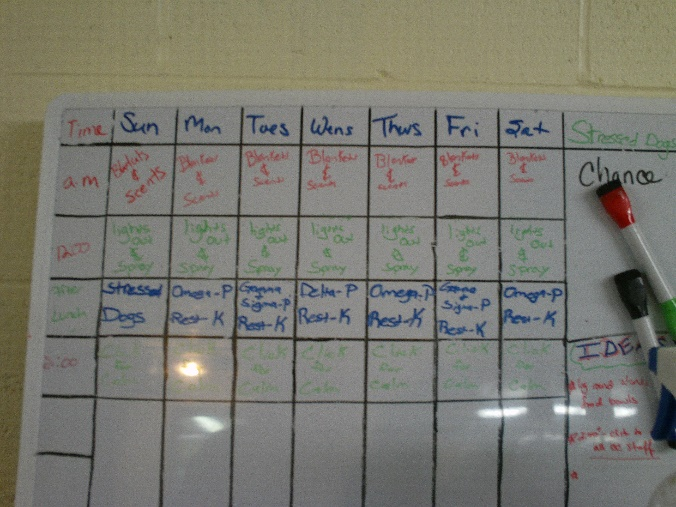 Time Sun Mon Tues Wens Thurs Fri Sat Stressed Dogs
a.m Blankets & Scents Blankets & Scents Blankets & Scents Blankets & Scents Blankets & Scents Blankets & Scents Blankets & Scents Chance
12:00 lights Out & Spray lights Out & Spray lights Out & Spray lights Out & Spray lights Out & Spray lights Out & Spray lights Out & Spray
Lunch Stressed Dogs Omega-P Rest-K Gamma + Sigma-P Rest-K Delta-P Rest-K Omega-P Rest-K Gamma + Sigma-P Rest-K Omega-P Rest-K
2:00 Click For Calm Click for Calm Click for Calm Click for Calm Click for Calm Click for Calm Click for Calm
IDEA